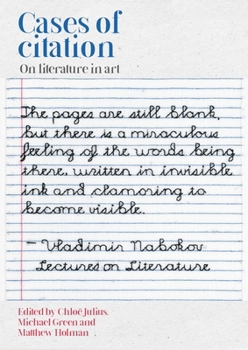 Cases of
citation
On literature in art
The pages are still blank,
but there is a miraculous
feeling of the words being
there, written in invisible
ink and clamoring to
become visible.
- Vladimir Nabokov
Lectures on Literature
Edited by Chloë Julius,
Michael Green and
Matthew Holman